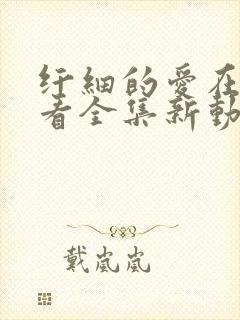 纤細的愛在
看全集新動
戴嵐嵐